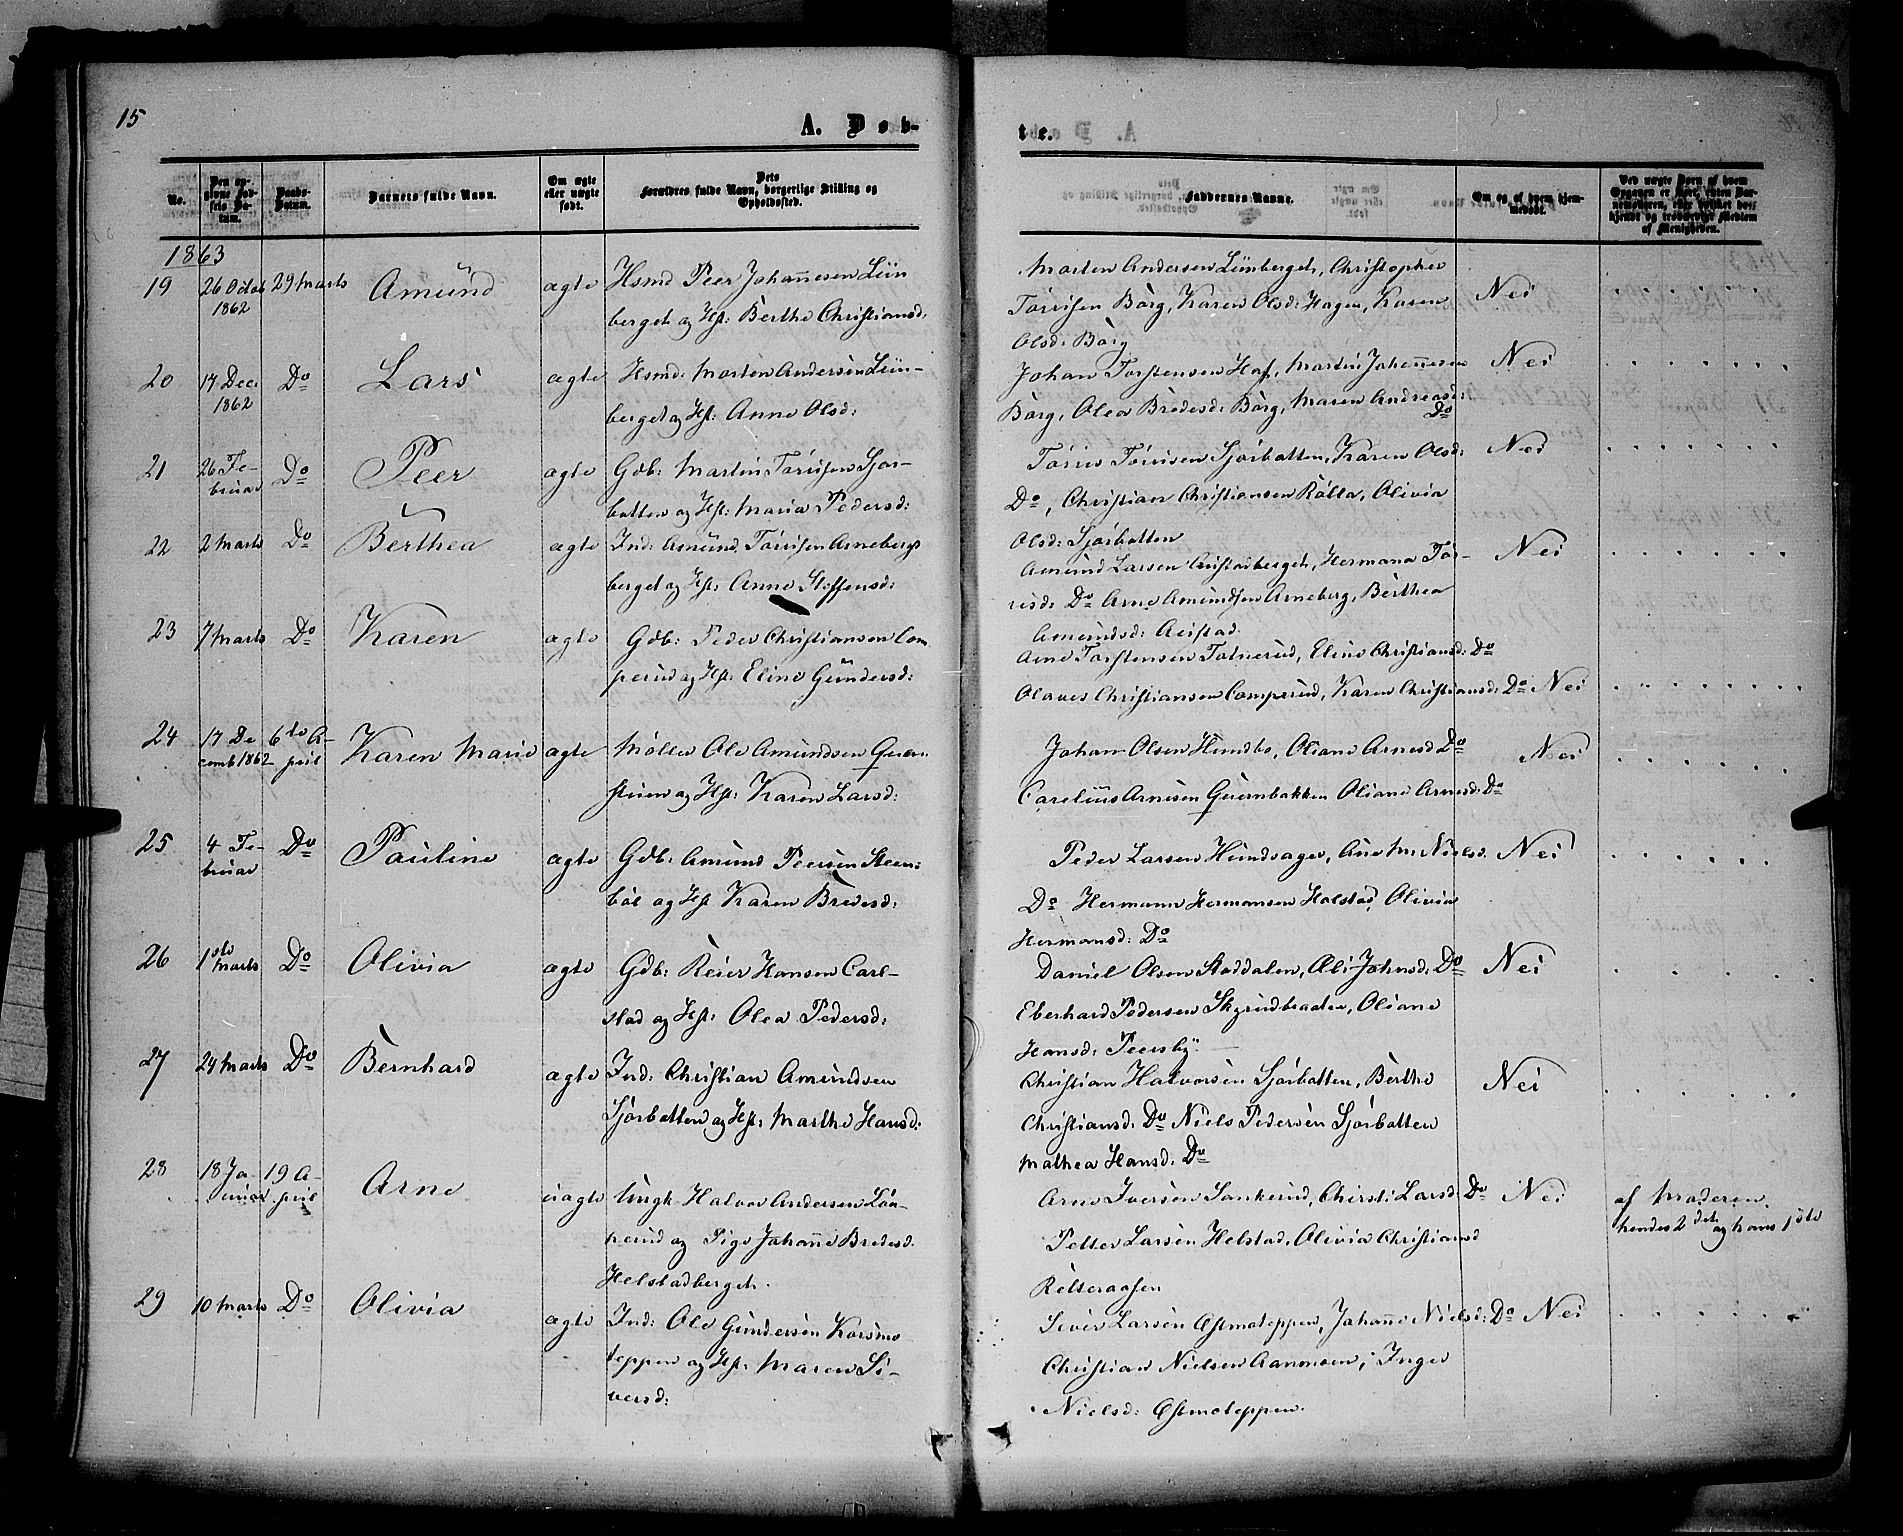 15
A. Døb-
te.
No.
Den opgivne Fødsels Datum.
Daabs-Datum.
Barnets fulde Navn.
Om ægte eller uægte født.
Dets Forældres fulde Navn, borgerlige Stilling og Opholdssted.
Faddernes Navne.
Om og af hvem hjemmedøbt.
1863
19 26 Octob 1862 29 Marts Amund ægte
Hsmd Peer Johannesen Lün
berget og Hst: Berthe Christiansd:
Morten Andersen Lünberget, Christopher
Torrisen Borg, Karen Olsd: Hagen, Karen
Olsd: Borg
Nei
20 17 Dec: 1862 Do Lars ægte
Hsmd: Morten Andersen Lün-
berget og Hst: Anne Olsd:
Johan Torstensen Hof, Martin Johannesen
Borg, Olea Bredesd: Borg, Maren Andreasd:
Do
Nei
21 26 Februar Do Peer ægte
Gdb: Martin Torrisen Sjor-
botten og Hst: Maria Pedersd:
Torris Torrisen Sjorbotten, Karen Olsd:
Do, Christian Christiansen Rotta, Olivia
Olsd: Sjorbotten
Nei
22 2 Marts Do Berthea ægte
Ind: Amund Torrisen Arnebergs
berget og Hst: Anne Steffensd:
Amund Larsen Austadberget, Hermana Tor-
risd: Do Arne Amundsen Arneberg, Berthea
Amundsd: Austad.
Nei
23 7 Marts Do Karen ægte
Gdb: Peder Christiansen Com
perud og Hst: Eline Gundersd:
Arne Torstensen Totnerud, Eline Christiansd: Do
Olaves Christiansen Comperud, Karen Christiansd: Do
Nei
24 17 Decemb 1862 6te April Karen Marie ægte
Møller Ole Amundsen Quern
stuen og Hst: Karen Larsd:
Johan Olsen Hundbo, Oliane Arnesd Do
Carelius Arnesen Quernbakken Oliane Arnesd: Do
Nei
25 4 Februar Do Pauline ægte
Gdb: Amund Peersen Steen:
böl og Hst Karen Bredesd:
Peder Larsen Hundsager, Ane M: Nielsd.
Do Hermann Hermansen Holstad, Olivia
Hermansd: Do
Nei
26 1ste Marts Do Olivia ægte
Gdb: Reier Hansen Carl-
stad og Hst: Olea Pedersd:
Daniel Olsen Stoddalen, Eli Johnsd: Do
Eberhard Pedersen Skyrudbraaten, Oliane
Hansd: Peersby.
Nei
27 24 Marts Do Bernhard ægte
Ind: Christian Amundsen
Sjorbotten og Hst: Marthe Hansd:
Christian Halvorsen Sjorbotten, Berthe
Christiansd: Do Niels Pedersen Sjorbotten
Mathea Hansd: Do
Nei
28 18 Januar 19 April Arne uægte
Ungk Halvor Andersen Lön-
nerud og Pige Johanne Bredesd.
Helstadberget.
Arne Iversen Sankerud, Chirsti Larsd: Do
Petter Larsen Helstad, Olivia Christiansd
Retteraasen
Nei
af Moderen
hendes 2det og hans 1ste
29 10 Marts Do Olivia ægte
Ind: Ole Gundersen Korsmo
teppen og Hst: Maren Si-
versd:
Siver Larsen Østmoteppen, Johanne Nielsd: Do
Christian Nielsen Aanmoen, Inger
Nielsd: Østmoteppen.
Nei